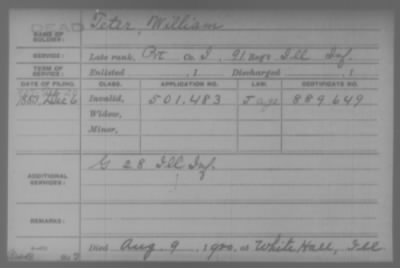 DEAD
NAME OF SOLDIER: Teter, William
SERVICE: Late rank, Pvt Co. I, 91 Reg't Ill Inf.
TERM OF SERVICE: Enlisted , 1 Discharged , 1
DATE OF FILING. CLASS. APPLICATION NO. LAW. CERTIFICATE NO.
1883 Dec 6 Invalid, 501.483 889.649
Widow,
Minor,
ADDITIONAL SERVICES: G 28 Ill Inf
REMARKS:
Died Aug. 9, 1900, at White Hall, Ill